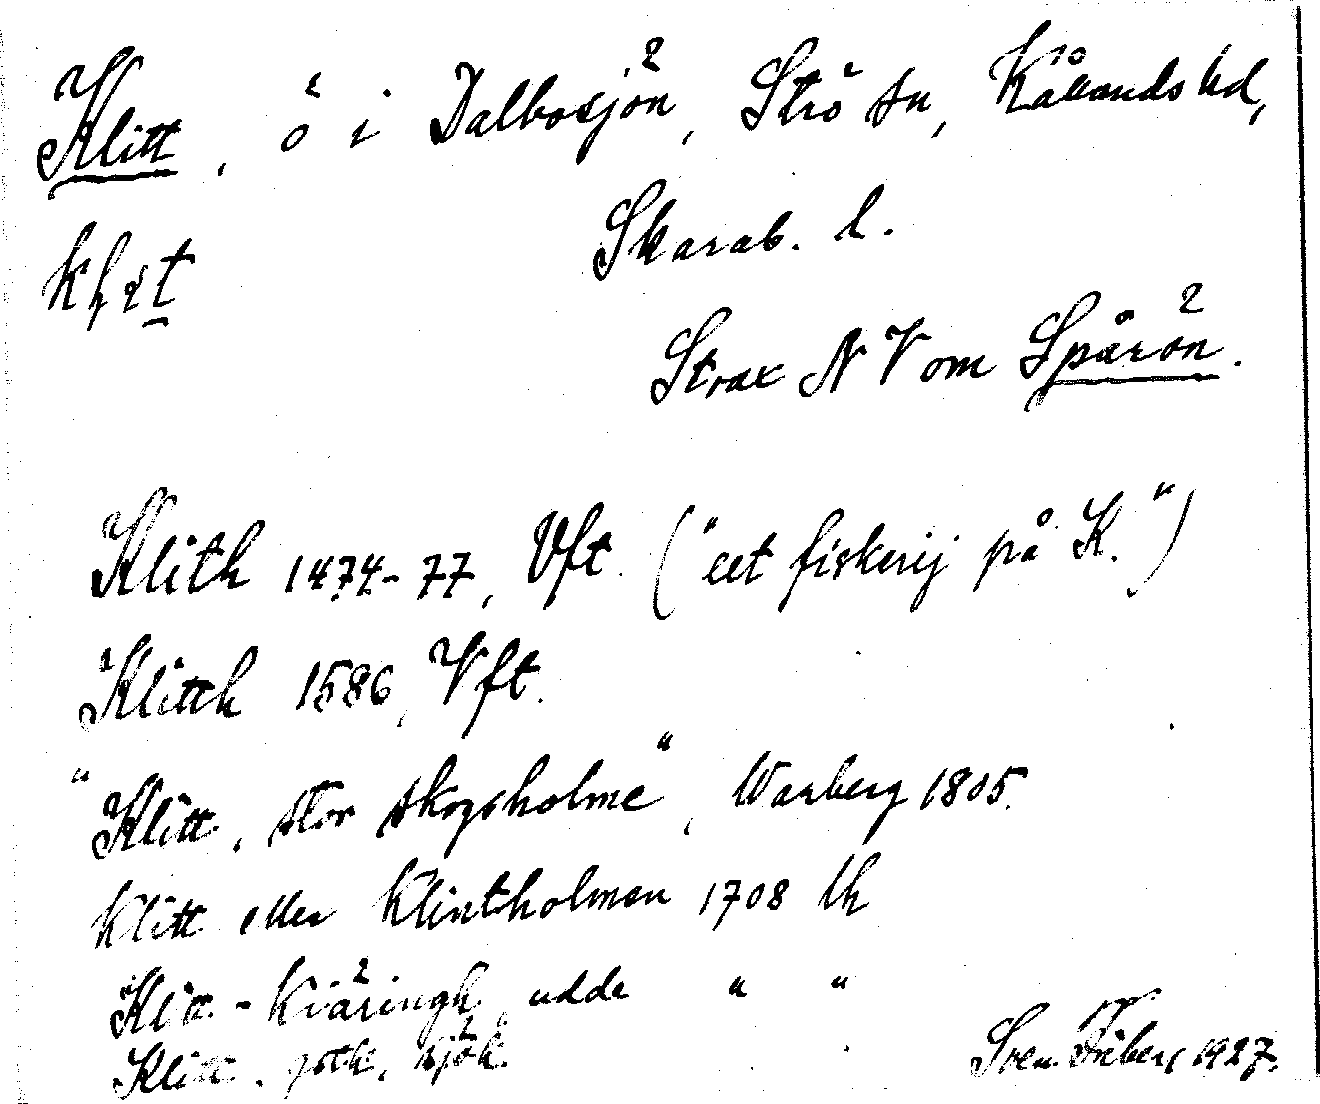 Klitt, ö i Dalbosjön, Strö sn, Kållands hd,
Skarab. l.
Strax NV om Spårön.
Klith 1474-77, Vft. ("eet fiskerij på K.")
Klitth 1586, Vft.
"Klitt, stor skogsholme", Warberg 1805.
Klitt eller Klintholmen 1708 lh
Klitt-Kiäringh, udde " "
Klitt
Sven Friberg 1927.